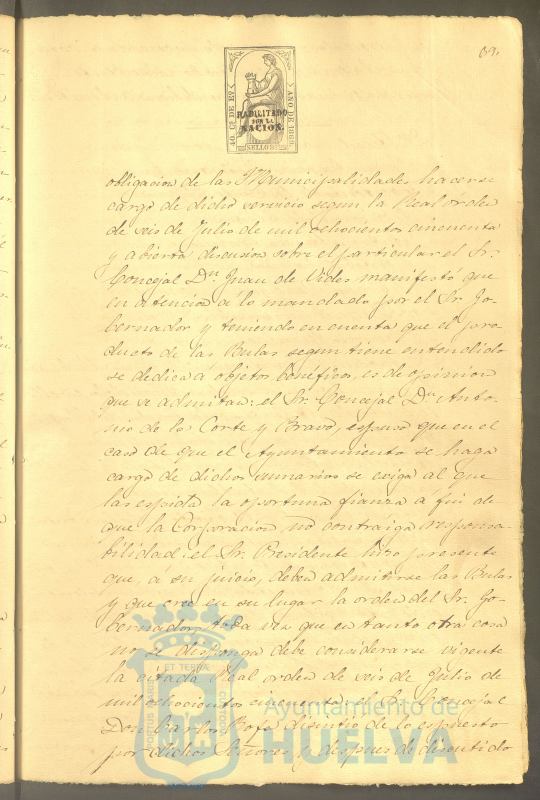 40 Cs DE Eo
AÑO DE 1869
HABILITADO
POR LA
NACION.
SELLO 9º
obligacion de las Municipalidades hacerse
cargo de dicho servicio segun la Real orden
de seis de Julio de mil ochocientos cincuenta
y abierta discusion sobre el particular el Sr.
Concejal Dn. Juan de Vides manifestó que
en atencion a lo mandado por el Sr. Go-
bernador y teniendo en cuenta que el pro-
ducto de las Bulas segun tiene entendido
se dedica a objetos benéficos, es de opinion
que se admitan: el Sr. Concejal Dn. Anto-
nio de la Corte y Bravo, espuso que en el
caso de que el Ayuntamiento se haga
cargo de dichos sumarios se exija al que
las espida la oportuna fianza a fin de
que la Corporacion no contraiga responsa-
bilidad: el Sr. Presidente hizo presente
que, a su juicio, deben admitirse las Bulas
y que cree en su lugar la orden del Sr. Go-
bernador, toda vez que en tanto otra cosa
no se disponga debe considerarse vigente
la citada Real orden de seis de Julio de
mil ochocientos cincuenta: el Sr. Concejal
Don Carlos Rofa disintió de lo espuesto
por dichos Señores y despues de discutido
PORTUS MARIS
ET TERRAE
CUSTODIA
Ayuntamiento de
HUELVA